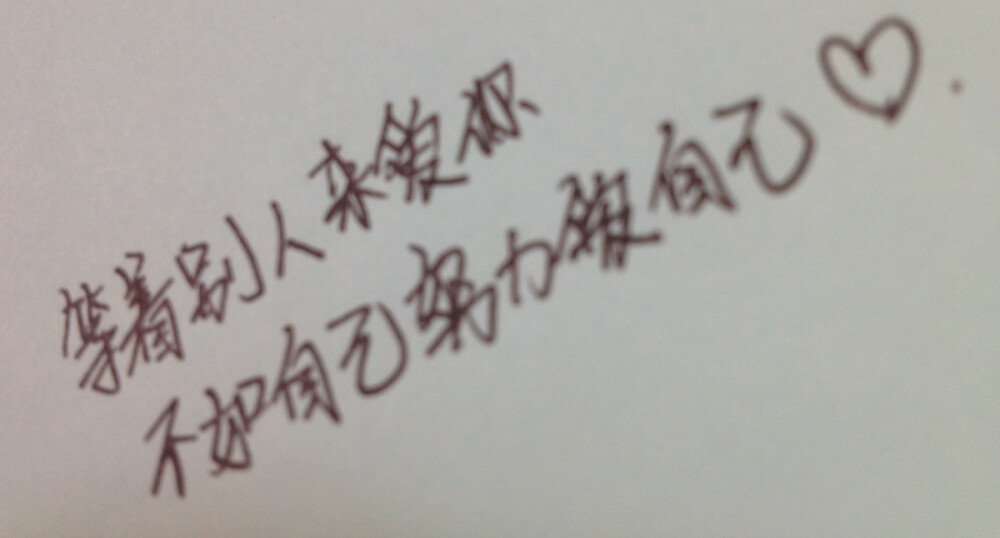 等着别人来爱你
不如自己努力爱自己♡.